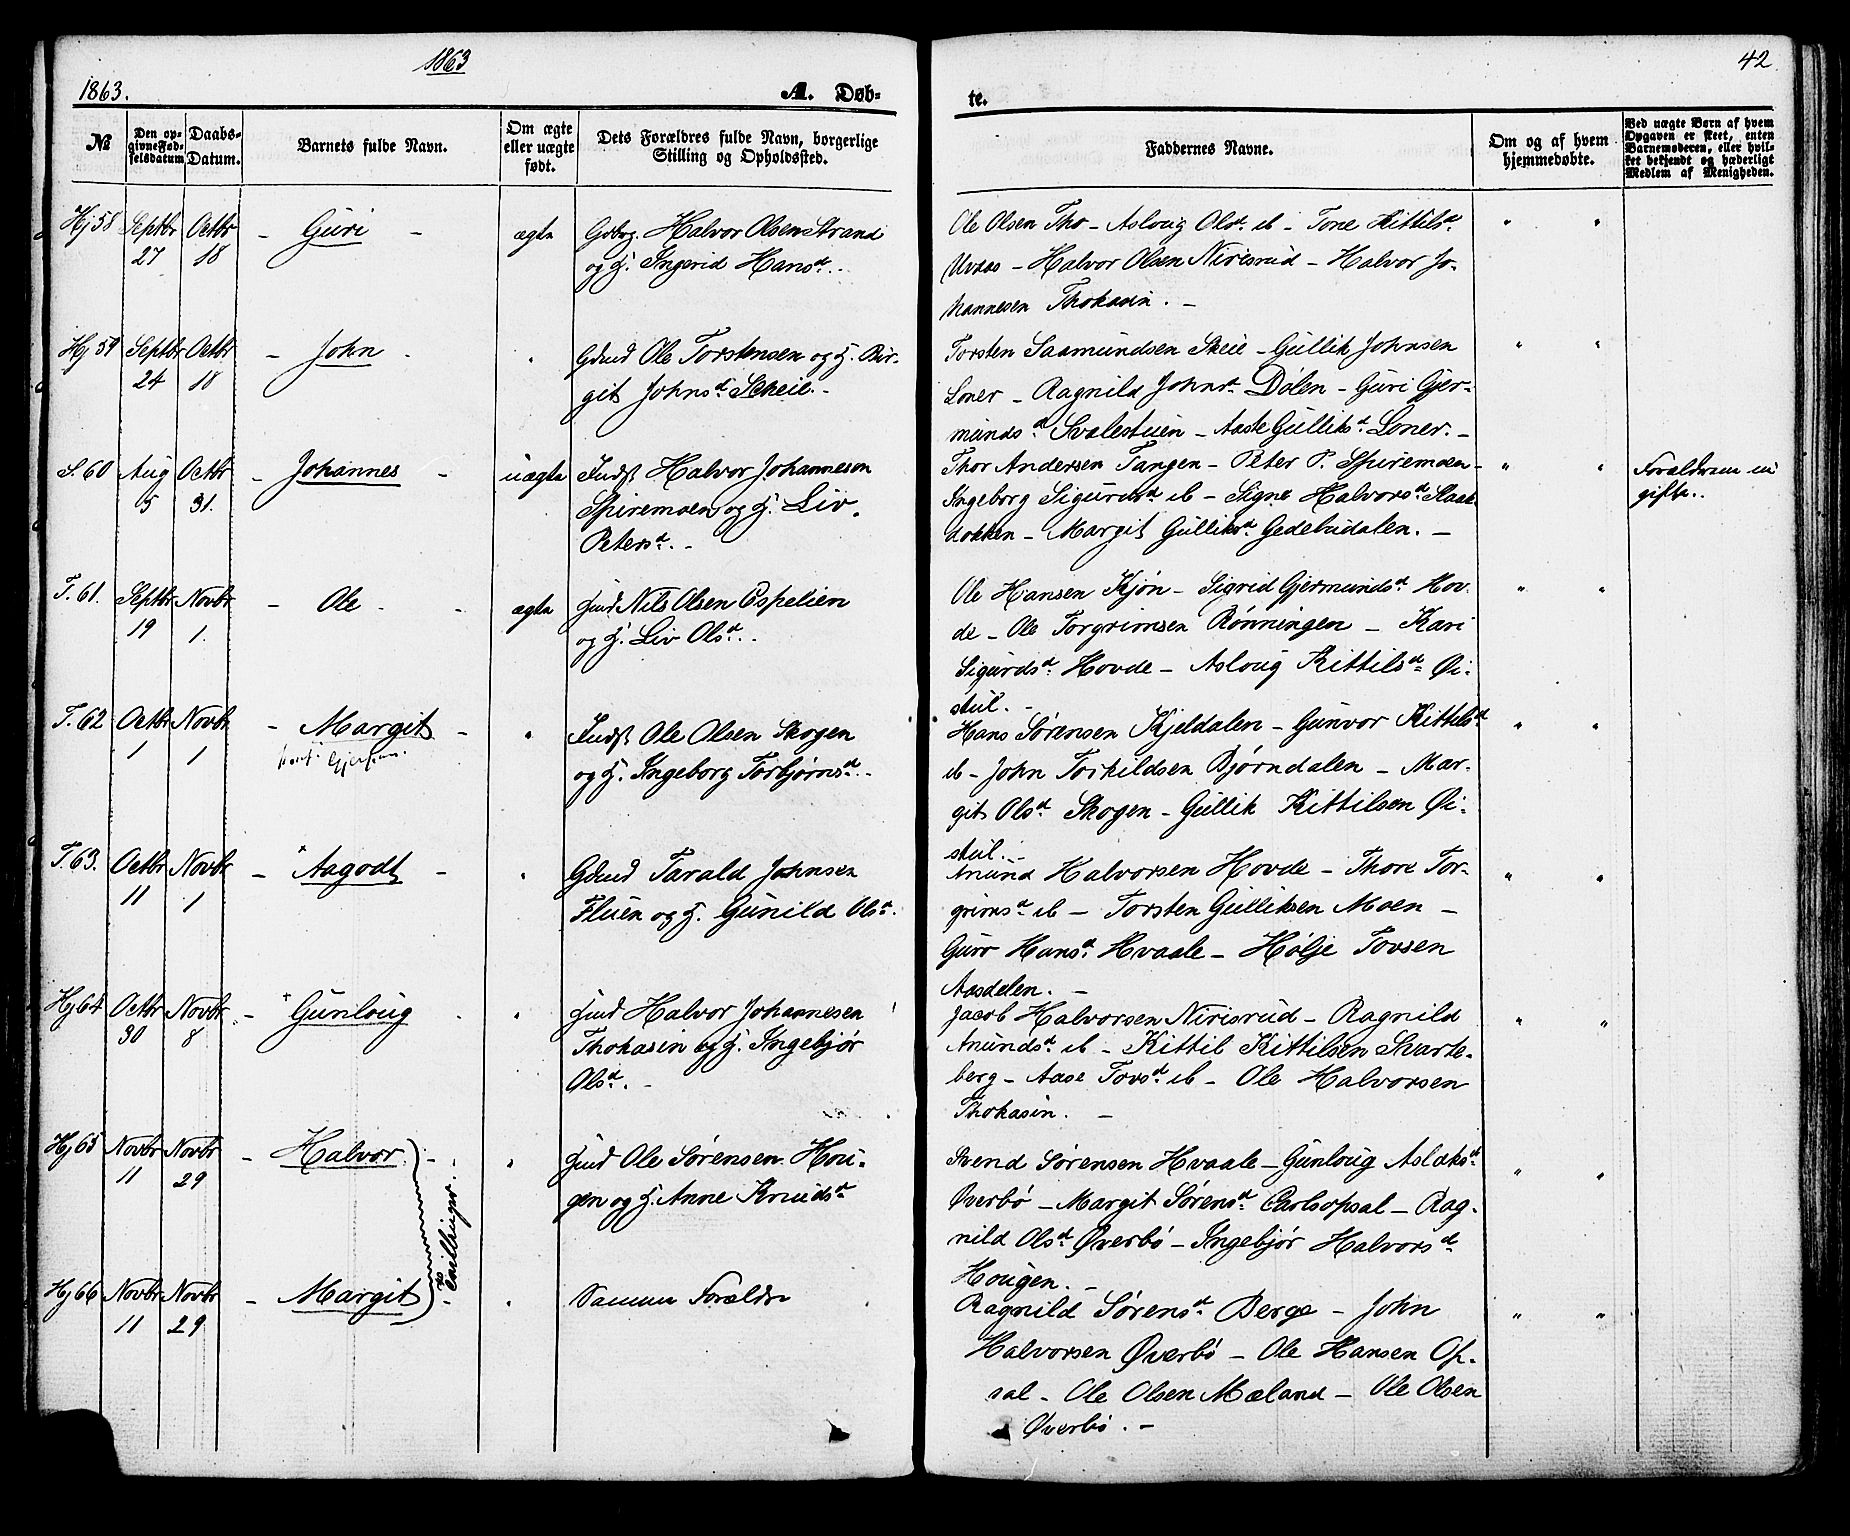 1863
42
1863.
A. Døb-
te.
№
Den op-
givne Fød-
selsdatum
Daabs-
Datum.
Barnets fulde Navn.
Om ægte
eller uægte
født.
Dets Forældres fulde Navn, borgerlige
Stilling og Opholdssted.
Faddernes Navne.
Om og af hvem
hjemmedøbte.
Ved uægte Børn af hvem
Opgaven er skeet, enten
Barnemoderen, eller hvil-
ket bekjendt og hæderligt
Medlem af Menigheden.
Hj 58 Septbr 27 Octbr 18 - Guri - ægte
Halvor Olsen Strand
og H. Ingerid Hansd. -
Ole Olsen Tho - Asloug Olsd. ib - Tone Kittilsd.
Uvaas - Halvor Olsen Nirisrud - Halvor Jo-
hannesen Thokasin. -
Hj 59 Septbr 24 Octbr 18 - John - "
Gdmd Ole Torstensen og H. Bir-
git Johnsd. Skeie. -
Torsten Saamundsen Skeie - Gullik Johnsen
Loner - Ragnild Johnsd. Dølen - Guri Gjer-
mundsd. Svalestuen - Aaste Gulliksd. Loner. -
S. 60 Aug 5 Octbr 31. - Johannes - uægte
Indst Halvor Johannesen
Spiremoen og H. Liv
Petersd. -
Thor Andersen Tangen - Peter P. Spiremoen -
Ingeborg Sigurdsd. ib - Signe Halvorsd. Staak-
dokken - Margit Gulliksd. Gedebudalen. -
Forældrene u-
gifte.
T. 61. Septbr 19 Novbr 1. - Ole - ægte
Nils Olsen Espelien
og H. Liv Olsd. -
Ole Hansen Kjøn - Sigrid Gjermundsd. Hov-
de - Ole Torgrimsen Rønningen - Kari
Sigurdsd. Hovde - Asloug Kittilsd. Øi-
stul. -
T. 62 Octbr 1 Novbr 1 - Margit - "
Indst Ole Olsen Skogen
og H. Ingeborg Torbjørnsd. -
Hans Sørensen Kjeldalen - Gunvor Kittilsd.
ib - John Torkildsen Bjørndalen - Mar-
git Olsd. Skogen - Gullik Kittilsen Øi-
stul. -
T. 63. Octbr 11 Novbr 1 - Aagodt - "
Gdmd Tarald Johnsen
Fluen og H. Gunild Olsd.
Anund Halvorsen Hovde - Thore Tor-
grimsd. ib - Torsten Gulliksen Moen -
Guro Hansd. Hvaale - Hølje Tovsen
Aasdelen. -
Hj 64 Octbr 30 Novbr 8 - Gunloug "
Halvor Johannesen
Thokasin og H. Ingebjør
Olsd. -
Jacob Halvorsen Nirisrud - Ragnild
Anundsd. ib - Kittil Kittilsen Svarte-
berg - Aase Tovsd. ib - Ole Halvorsen
Thokasin. -
Hj 65 Novbr 11 Novbr 29 - Halvor - "
Tvillinger.
Ole Sørensen Hou-
gen og H. Anne Knudsd.
Svend Sørensen Hvaale - Gunloug Aslaksd.
Øverbø - Margit Sørensd. Carlsopsal - Rag-
nild Olsd. Øverbø - Ingebjør Halvorsd.
Hougen. -
Hj 66 Novbr 11 Novbr 29 - Margit "
Samme Forældre
Ragnild Sørensd. Berge - John
Halvorsen Øverbø - Ole Hansen Op-
sal - Ole Olsen Mæland - Ole Olsen
Øverbø. -